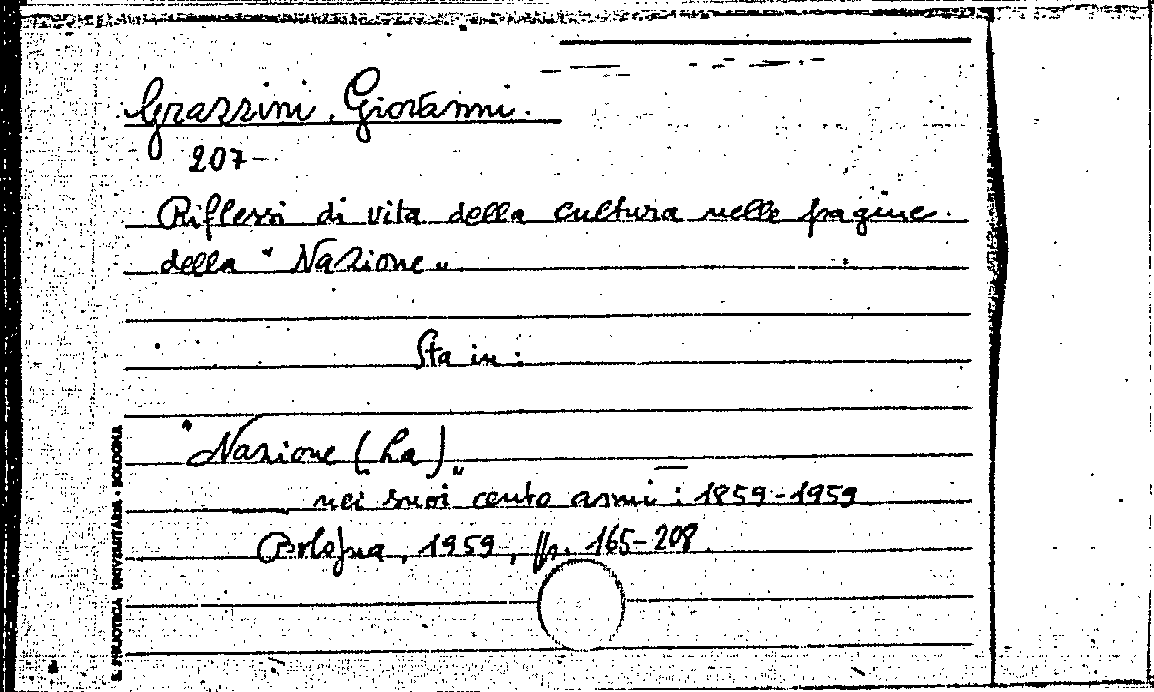 Grazzini, Giovanni.
207-
Riflessi di vita della cultura nelle pagine
della "Nazione"
Sta in:
"Nazione (La)"
nei suoi cento anni: 1859-1959
Bologna, 1959, pp. 165-208.
BIBLIOTECA UNIVERSITARIA - BOLOGNA